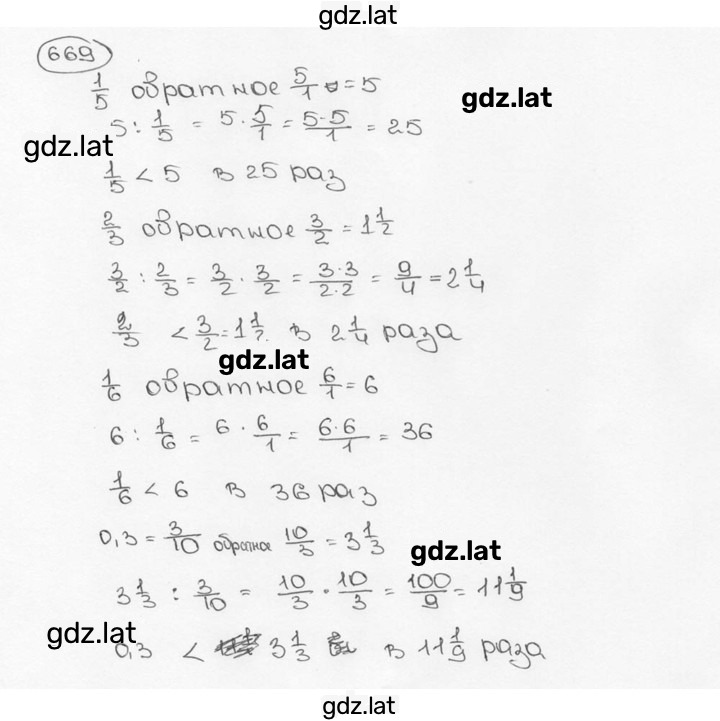 gdz.lat
669
1/5 обратное 5/1 = 5
gdz.lat
5 : 1/5 = 5 · 5/1 = 5·5/1 = 25
gdz.lat
1/5 < 5 в 25 раз
2/3 обратное 3/2 = 1 1/2
3/2 : 2/3 = 3/2 · 3/2 = 3·3/2·2 = 9/4 = 2 1/4
2/3 < 3/2 = 1 1/2 в 2 1/4 раза
gdz.lat
1/6 обратное 6/1 = 6
6 : 1/6 = 6 · 6/1 = 6·6/1 = 36
1/6 < 6 в 36 раз
0,3 = 3/10 обратное 10/3 = 3 1/3
gdz.lat
3 1/3 : 3/10 = 10/3 · 10/3 = 100/9 = 11 1/9
gdz.lat
0,3 < 3 1/3 в 11 1/9 раза
gdz.lat